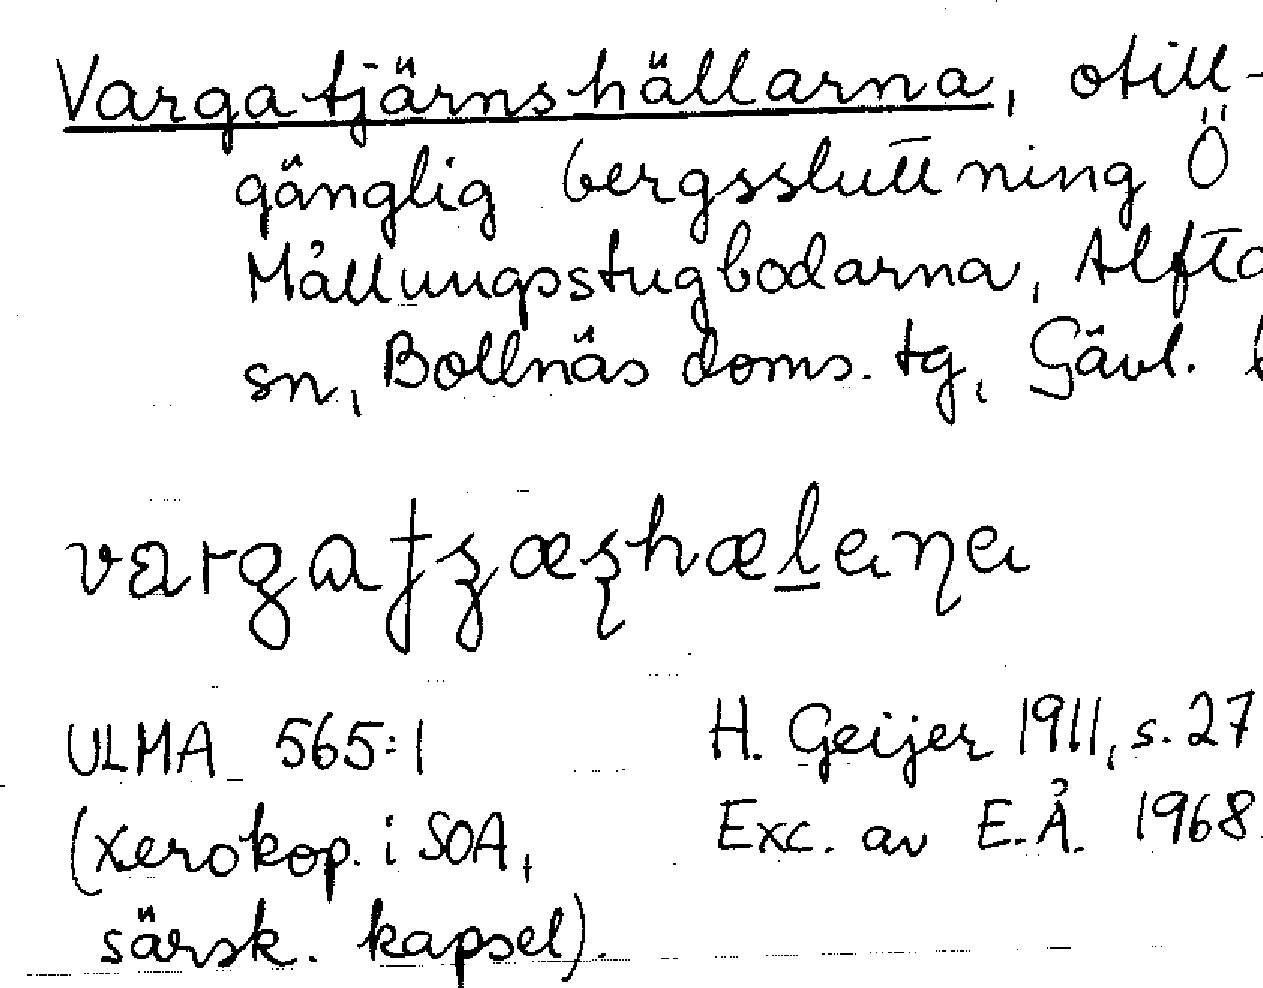 Vargatjärnshällarna, otill-
gänglig bergssluttning Ö
Mållungsstugbodarna, Alfta
sn, Bollnäs doms. tg, Gävl. l
ULMA 565:1
H. Geijer 1911, s. 27
(xerokop. i SOA,
Exc. av E.Å. 1968.
särsk. kapsel).